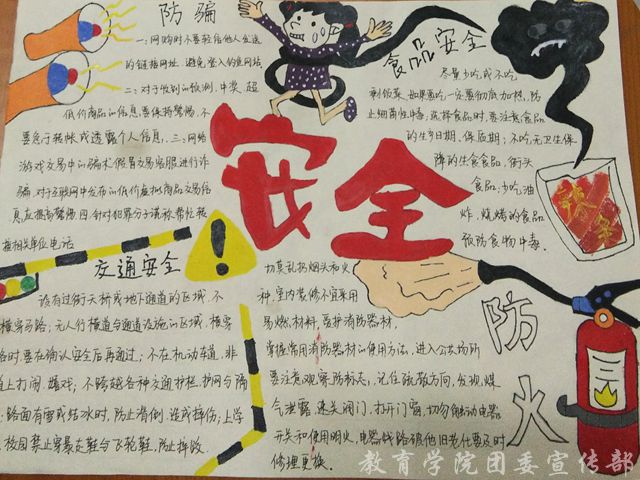 防骗
一:网购时不要轻信他人发送
的链接网址,避免登入钓鱼网站
二:对于收到的欺侧,中奖、超
低价商品的信息要保持警惕,不
要急于转帐或透露个人信息,三:网络
游戏交易中的骗术假冒交易客服进行诈
骗 对于互联网中发布的低价虚拟商品交易信
息应提高警惕 四 针对犯罪分子谎称帮忙转
接相关单位电话
食品安全
尽量少吃或不吃
剩饭菜,如果要吃一定要彻底加热,防
止细菌性中毒,选择食品时,要注意食品
的生产日期、保质期;不吃无卫生保
障的生食食品,街头
食品,少吃油
炸、烧烤的食品
预防食物中毒.
安全
交通安全
没有过街天桥或地下通道的区域,不
横穿马路;无人行横道与通道设施的区域,横穿
路时要在确认安全后再通过;不在机动车道、非
道上打闹、嬉戏;不跨越各种交通护栏、护网与隔
路面有雪或结冰时,防止滑倒,造成摔伤;上学
校园禁止穿暴走鞋与飞轮鞋,防止摔跤.
防火
切莫乱扔烟头和火
种,室内装修不宜采用
易燃材料,爱护消防器材,
掌握常用消防器材的使用方法,进入公共场所
要注意观察防标志,记住疏散方向,发现煤
气泄露,速关阀门,打开门窗,切勿触动电器
开关和使用明火,电器线路破旧老化要及时
修理更换.
教育学院团委宣传部